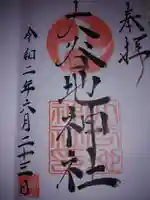 奉拝
大谷地神社
令和二年六月二十三日